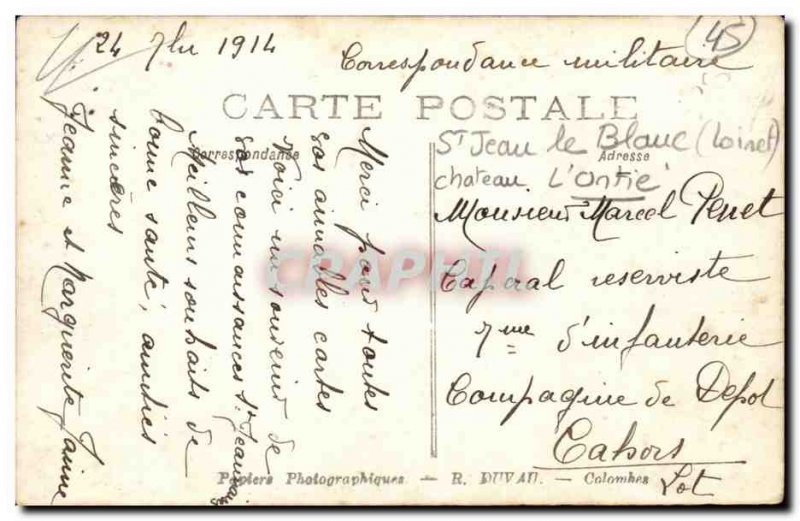 24 7bre 1914
Correspondance militaire
45
CARTE POSTALE
Correspondance
Adresse
St Jean le Blanc (Loiret)
chateau L'Ontie
Monsieur Marcel Penet
Caporal reserviste
7me d'infanterie
Compagnie de Depot
Cahors
Lot
Merci pour toutes
vos aimables cartes
Voici un souvenir de
vos connaissances St Jeannaises
Meilleurs souhaits de
bonne santé, amitiés
sincères
Jeanne et Marguerite
Papiers Photographiques. — R. DUVAU. — Colombes
CPAPHIL